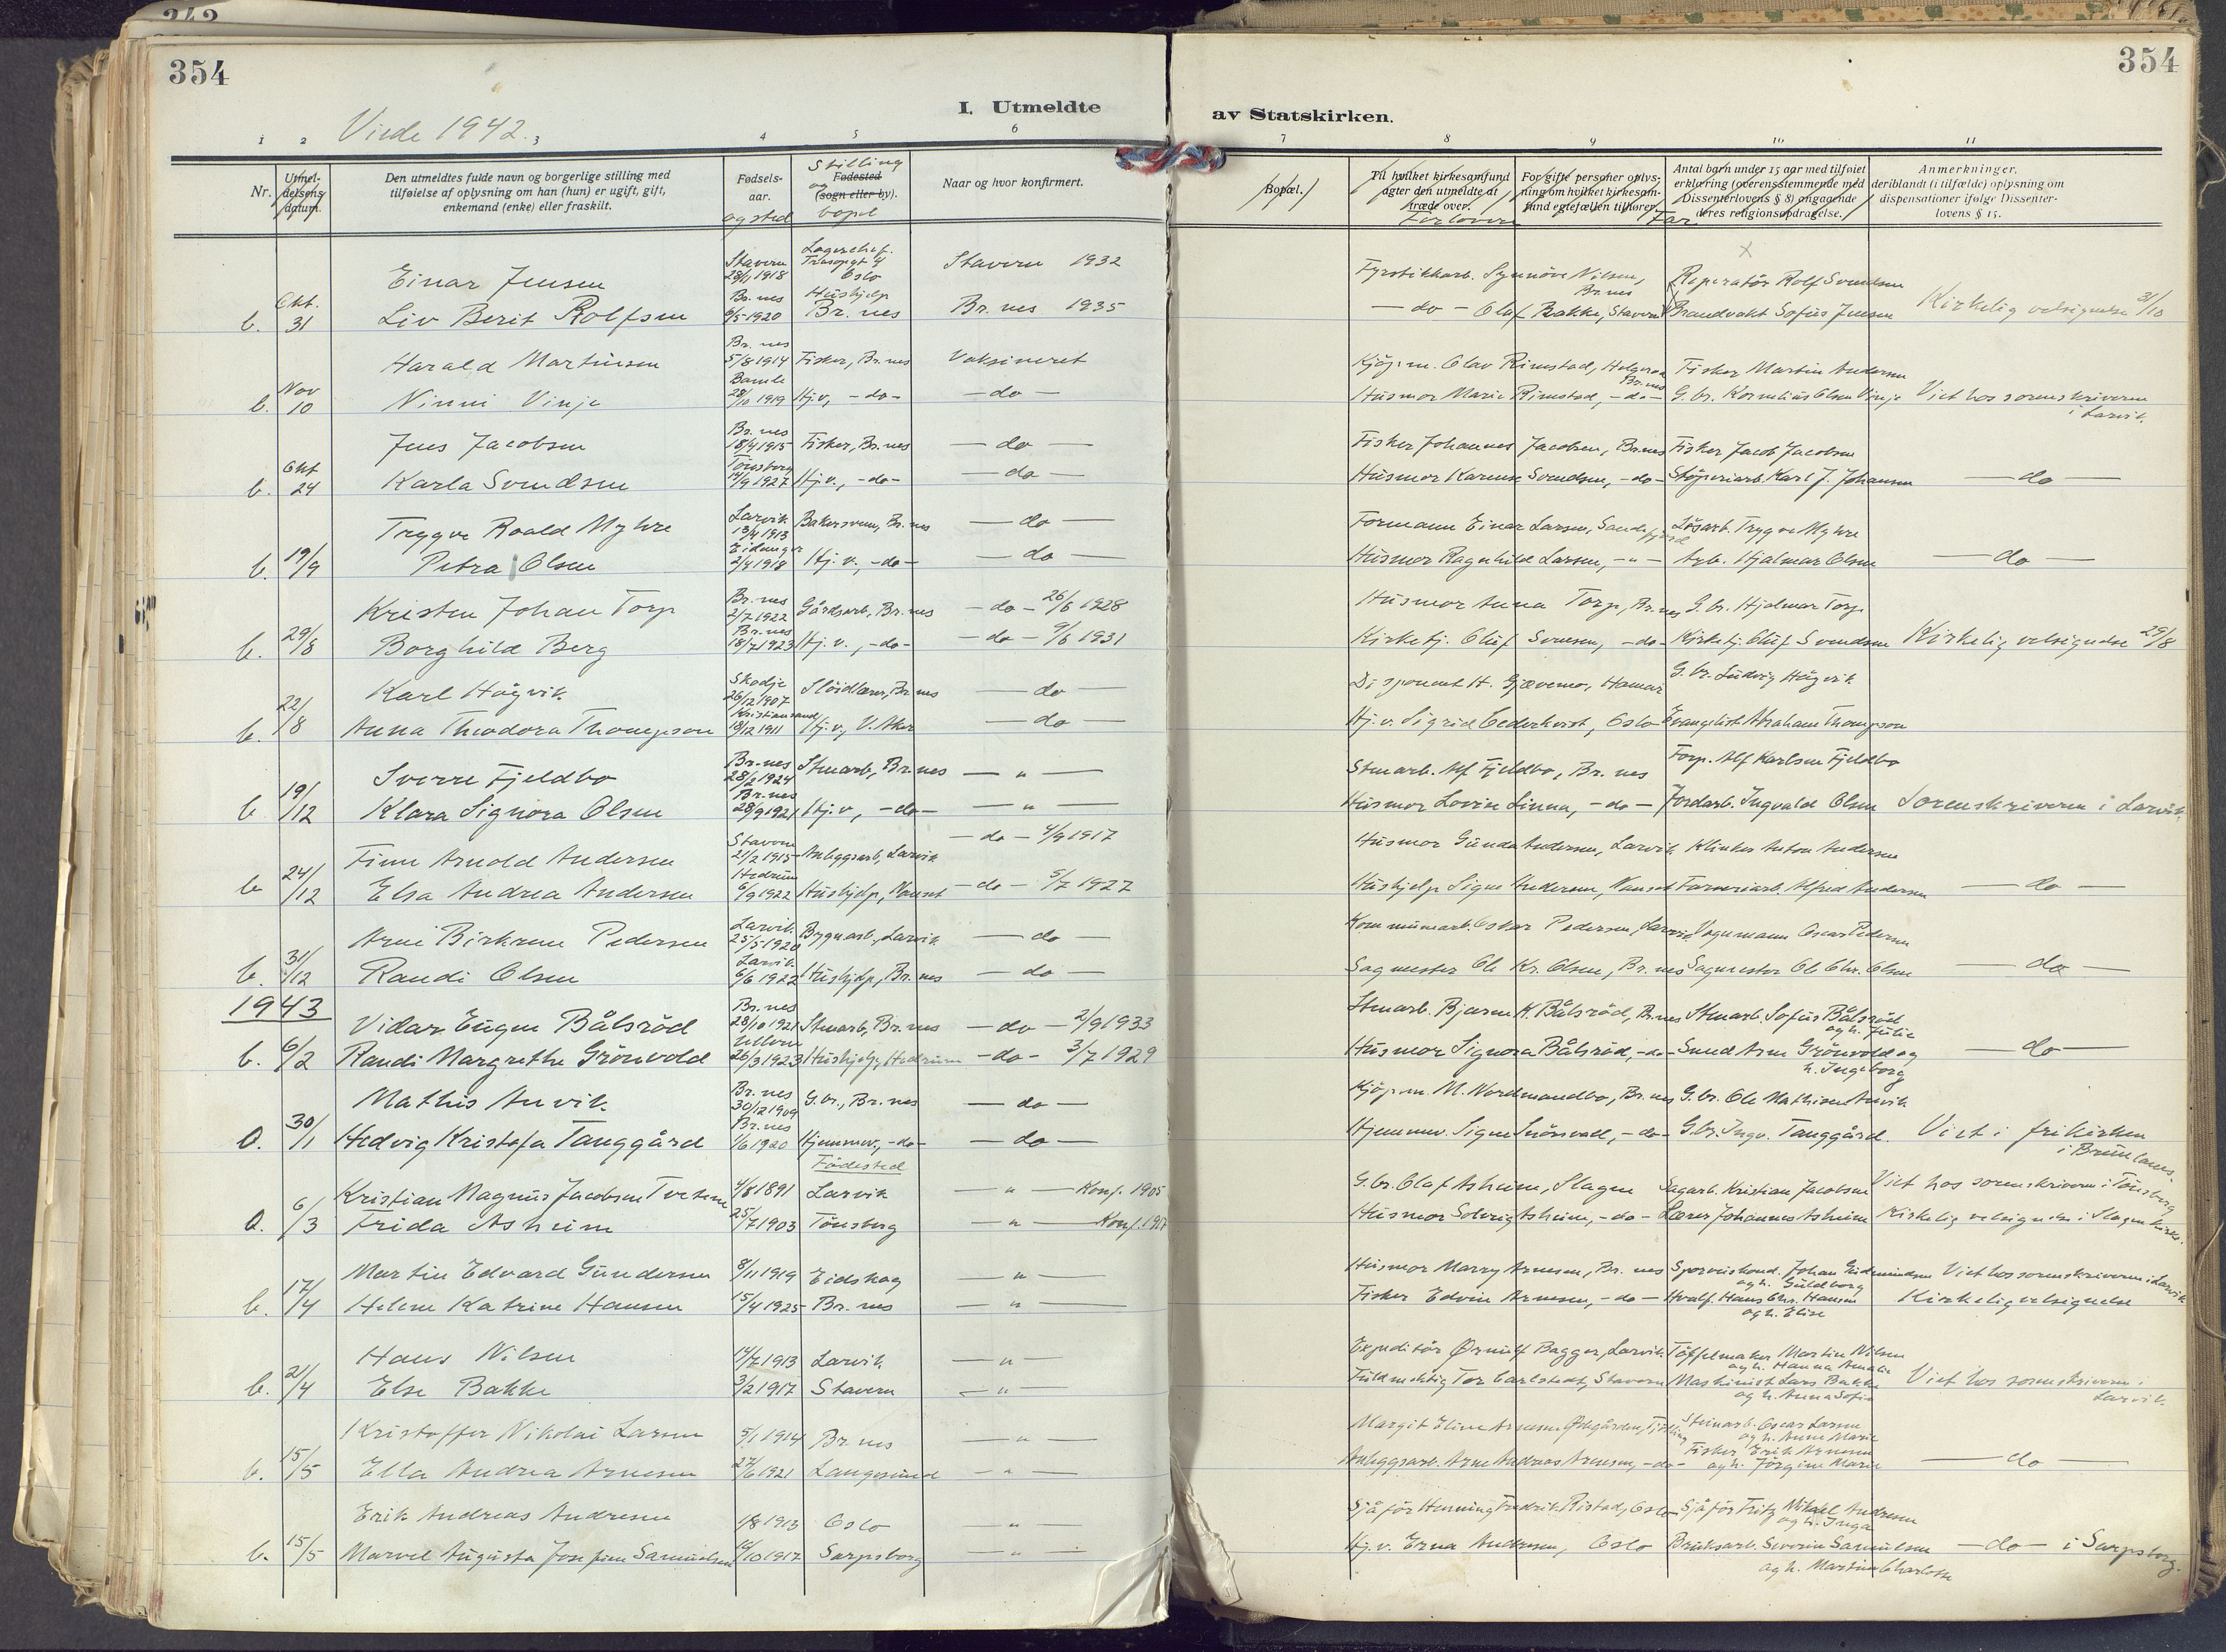 354
354
I. Utmeldte
av Statskirken.
Viede 1942.
1 2 3 4 5 6 7 8 9 10 11
Nr.
Utmeldelsens datum.
Den utmeldtes fulde navn og borgerlige stilling med
tilføielse af oplysning om han (hun) er ugift, gift,
enkemand (enke) eller fraskilt.
Fødsels-
aar.
og sted
Stilling
Fødested
og
(sogn eller by).
bopel
Naar og hvor konfirmert.
Bopæl.
Til hvilket kirkesamfund
agter den utmeldte at
træde over.
Forlovere
For gifte personer oplys-
ning om hvilket kirkesam-
fund egtefællen tilhører.
Far
Antal barn under 15 aar med tilføiet
erklæring (overensstemmende med
Dissenterlovens § 8) angaaende
deres religionsopdragelse.
Anmerkninger,
deriblandt (i tilfælde) oplysning om
dispensationer ifølge Dissenter-
lovens § 15.
Einar Jensen Stavern 28/1 1918 Oslo Stavern 1932 Fyrstikkarb. Synnöve Nilsen, Br.nes Reperatör Rolf Svendsen
b. Okt. 31 Liv Berit Rolfsen Br.nes 6/5 1920 Hushjelp Br.nes Br.nes 1935 - do - Olaf Bakke, Stavern Brandvakt Sofus Jensen Kirkelig velsignelse 31/10
Harald Martinsen Br.nes 5/8 1914 Fisker, Br.nes Voksineret Kjöpm. Olav Rimstad, Helgeroa Br.nes Fisker Martin Andersen
b. Nov 10 Ninni Vinje Bamle 28/10 1919 Hj.v, -do- - do - Husmor Marie Rimstad, -do- G.br. Kornelius Olsen Vinje Viet hos sorenskriveren i Larvik.
Jens Jacobsen Br.nes 18/4 1915 Fisker, Br.nes - do - Fisker Johannes Jacobsen, Br.nes Fisker Jacob Jacobsen
b. Okt 24 Karla Svendsen Tönsberg 14/9 1927 Hj.v., -do- - do - Husmor Karense Svendsen, -do- Støperiarb. Karl J. Johansen - do -
Trygve Roald Myhre Larvik 13/4 1913 Bakersvenn, Br.nes - do - Formann Einar Larsen, Sandefjord Lösarb. Trygve Myhre
b. 19/9 Petra Olsen Eidanger 2/4 1918 Hj.v., -do- - do - Husmor Ragnhild Larsen, - " - Arb. Hjalmar Olsen - do -
Kristen Johan Torp Br.nes 2/7 1922 Gårdsarb, Br.nes - do - 26/6 1928 Husmor Anna Torp, Br.nes G.br. Hjalmar Torp
b. 29/8 Borghild Berg Br.nes 18/7 1923 Hj.v., -do- - do - 9/6 1931 Kirketj. Oluf Svensen, -do- Kirketj. Oluf Svendsen Kirkelig velsignelse 29/8
Karl Högvik Skodje 26/12 1907 Slöidlærer, Br.nes - do - Disponent H. Gjævemo, Hamar G.br. Ludvig Högvik
b. 22/8 Anna Theodora Thompson Kristiansand 18/12 1911 Hj.v, V. Aker - do - Hj.v. Sigrid Cederkvist, Oslo Evangelist Abraham Thompson
Sverre Fjeldbo Br.nes 28/2 1924 Stenarb, Br.nes - " - Stenarb. Alf Fjeldbo, Br.nes Forp. Alf Karlsen Fjeldbo
b 19/12 Klara Signora Olsen Br.nes 28/9 1921 Hj.v, -do- - " - Husmor Lovise Linna, -do- Jordarb. Ingvald Olsen Sorenskriveren i Larvik.
Finn Arnold Andersen Stavern 21/2 1915 Anleggsarb, Larvik - do - 4/9 1917 Husmor Gunda Andersen, Larvik Klinker Anton Andersen
b 24/12 Elsa Andrea Andersen Hedrum 6/9 1922 Hushjelp, Nanset - do - 5/7 1927 Hushjelp Signe Andersen, Nanset Farveriarb. Alfred Andersen - do -
Arne Birkrem Pedersen Larvik 25/5 1920 Bygnarb, Larvik - do - Kommunearb. Oskar Pedersen, Larvik Vognmann Oscar Pedersen
b. 31/12 Randi Olsen Larvik 6/6 1922 Hushjelp, Br.nes - do - Sagmester Ole Kr. Olsen, Br.nes Sagmester Ole Chr. Olsen - do -
1943
Vidar Eugen Bålsröd Br.nes 28/10 1921 Stenarb, Br.nes - do - 2/9 1933 Stenarb. Bjarne K. Bålsröd, Br.nes Stenarb. Sofus Bålsröd og h. Julie
b. 6/2 Randi Margrethe Grönvold 26/3 1923 Hushjelp, Hedrum - do - 3/7 1929 Husmor Signora Bålsröd, -do- Smed Arne Grönvold og h. Ingeborg - do -
Mathis Anvik Br.nes 30/12 1909 G.br., Br.nes - do - Kjöpm. M. Nordmandbo, Br.nes G.br. Ole Mathisen Anvik
O. 30/1 Hedvig Kristofa Tanggård Br.nes 1/6 1920 Hjemmev., -do- - do - Hjemmev. Signe Snörsvall, -do- G.br. Ingv. Tanggård. Viet i frikirken i Brunlanes.
Födested
Kristian Magnus Jacobsen Tvetene 4/8 1891 Larvik - " - Konf. 1905 G.br. Olaf Asheim, Slagen Sagarb. Kristian Jacobsen Viet hos sorenskriveren i Tönsberg
O. 6/3 Frida Asheim 25/7 1903 Tönsberg - " - Konf. 1917 Husmor Solveig Asheim, -do- Lærer Johannes Asheim Kirkelig velsignelse i Slagen kirke.
Martin Edvard Gundersen 8/11 1919 Eidskog - " - Husmor Marry Arnesen, Br.nes Sporveiskond. Johan Gudmundsen og h. Guldborg Viet hos sorenskriveren i Larvik
b. 17/4 Helene Katrine Hansen 15/4 1925 Br.nes - " - Fisker Edvin Arnesen, -do- Hvalf. Hans Chr. Hansen og h. Elise Kirkelig velsignelse
Hans Nilsen 14/7 1913 Larvik - " - Expeditör Ørnulf Bagger, Larvik Töffelmaker Martin Nilsen og h. Hanna Amalie
b. 21/4 Else Bakke 3/2 1917 Stavern - " - Fuldmektig Tor Carlstedt, Stavern Maskinist Lars Bakke og h. Anna Sofie Viet hos sorenskriveren i Larvik.
Kristoffer Nikolai Larsen 5/1 1914 Br.nes - " - Margit Eline Arnesen Østgården, Tjölling Stenarb. Oscar Larsen og h. Anne Marie
b. 15/5 Ella Andrea Arnesen 27/6 1921 Langesund - " - Anleggsarb. Arne Andreas Arnesen, -do- Fisker Erik Arnesen og h. Jörgine Marie - do -
Erik Andreas Andresen 1/8 1913 Oslo - " - Sjåför Henning Fredrik Ristad, Oslo Sjåför Fritz Mikael Andresen og h. Inga
b. 15/5 Marvel Augusta Josefine Samuelsen 16/10 1917 Sarpsborg - " - Hj.v. Erna Andresen, Oslo Bruksarb. Severin Samuelsen og h. Martine Charlotte - do - i Sarpsborg.